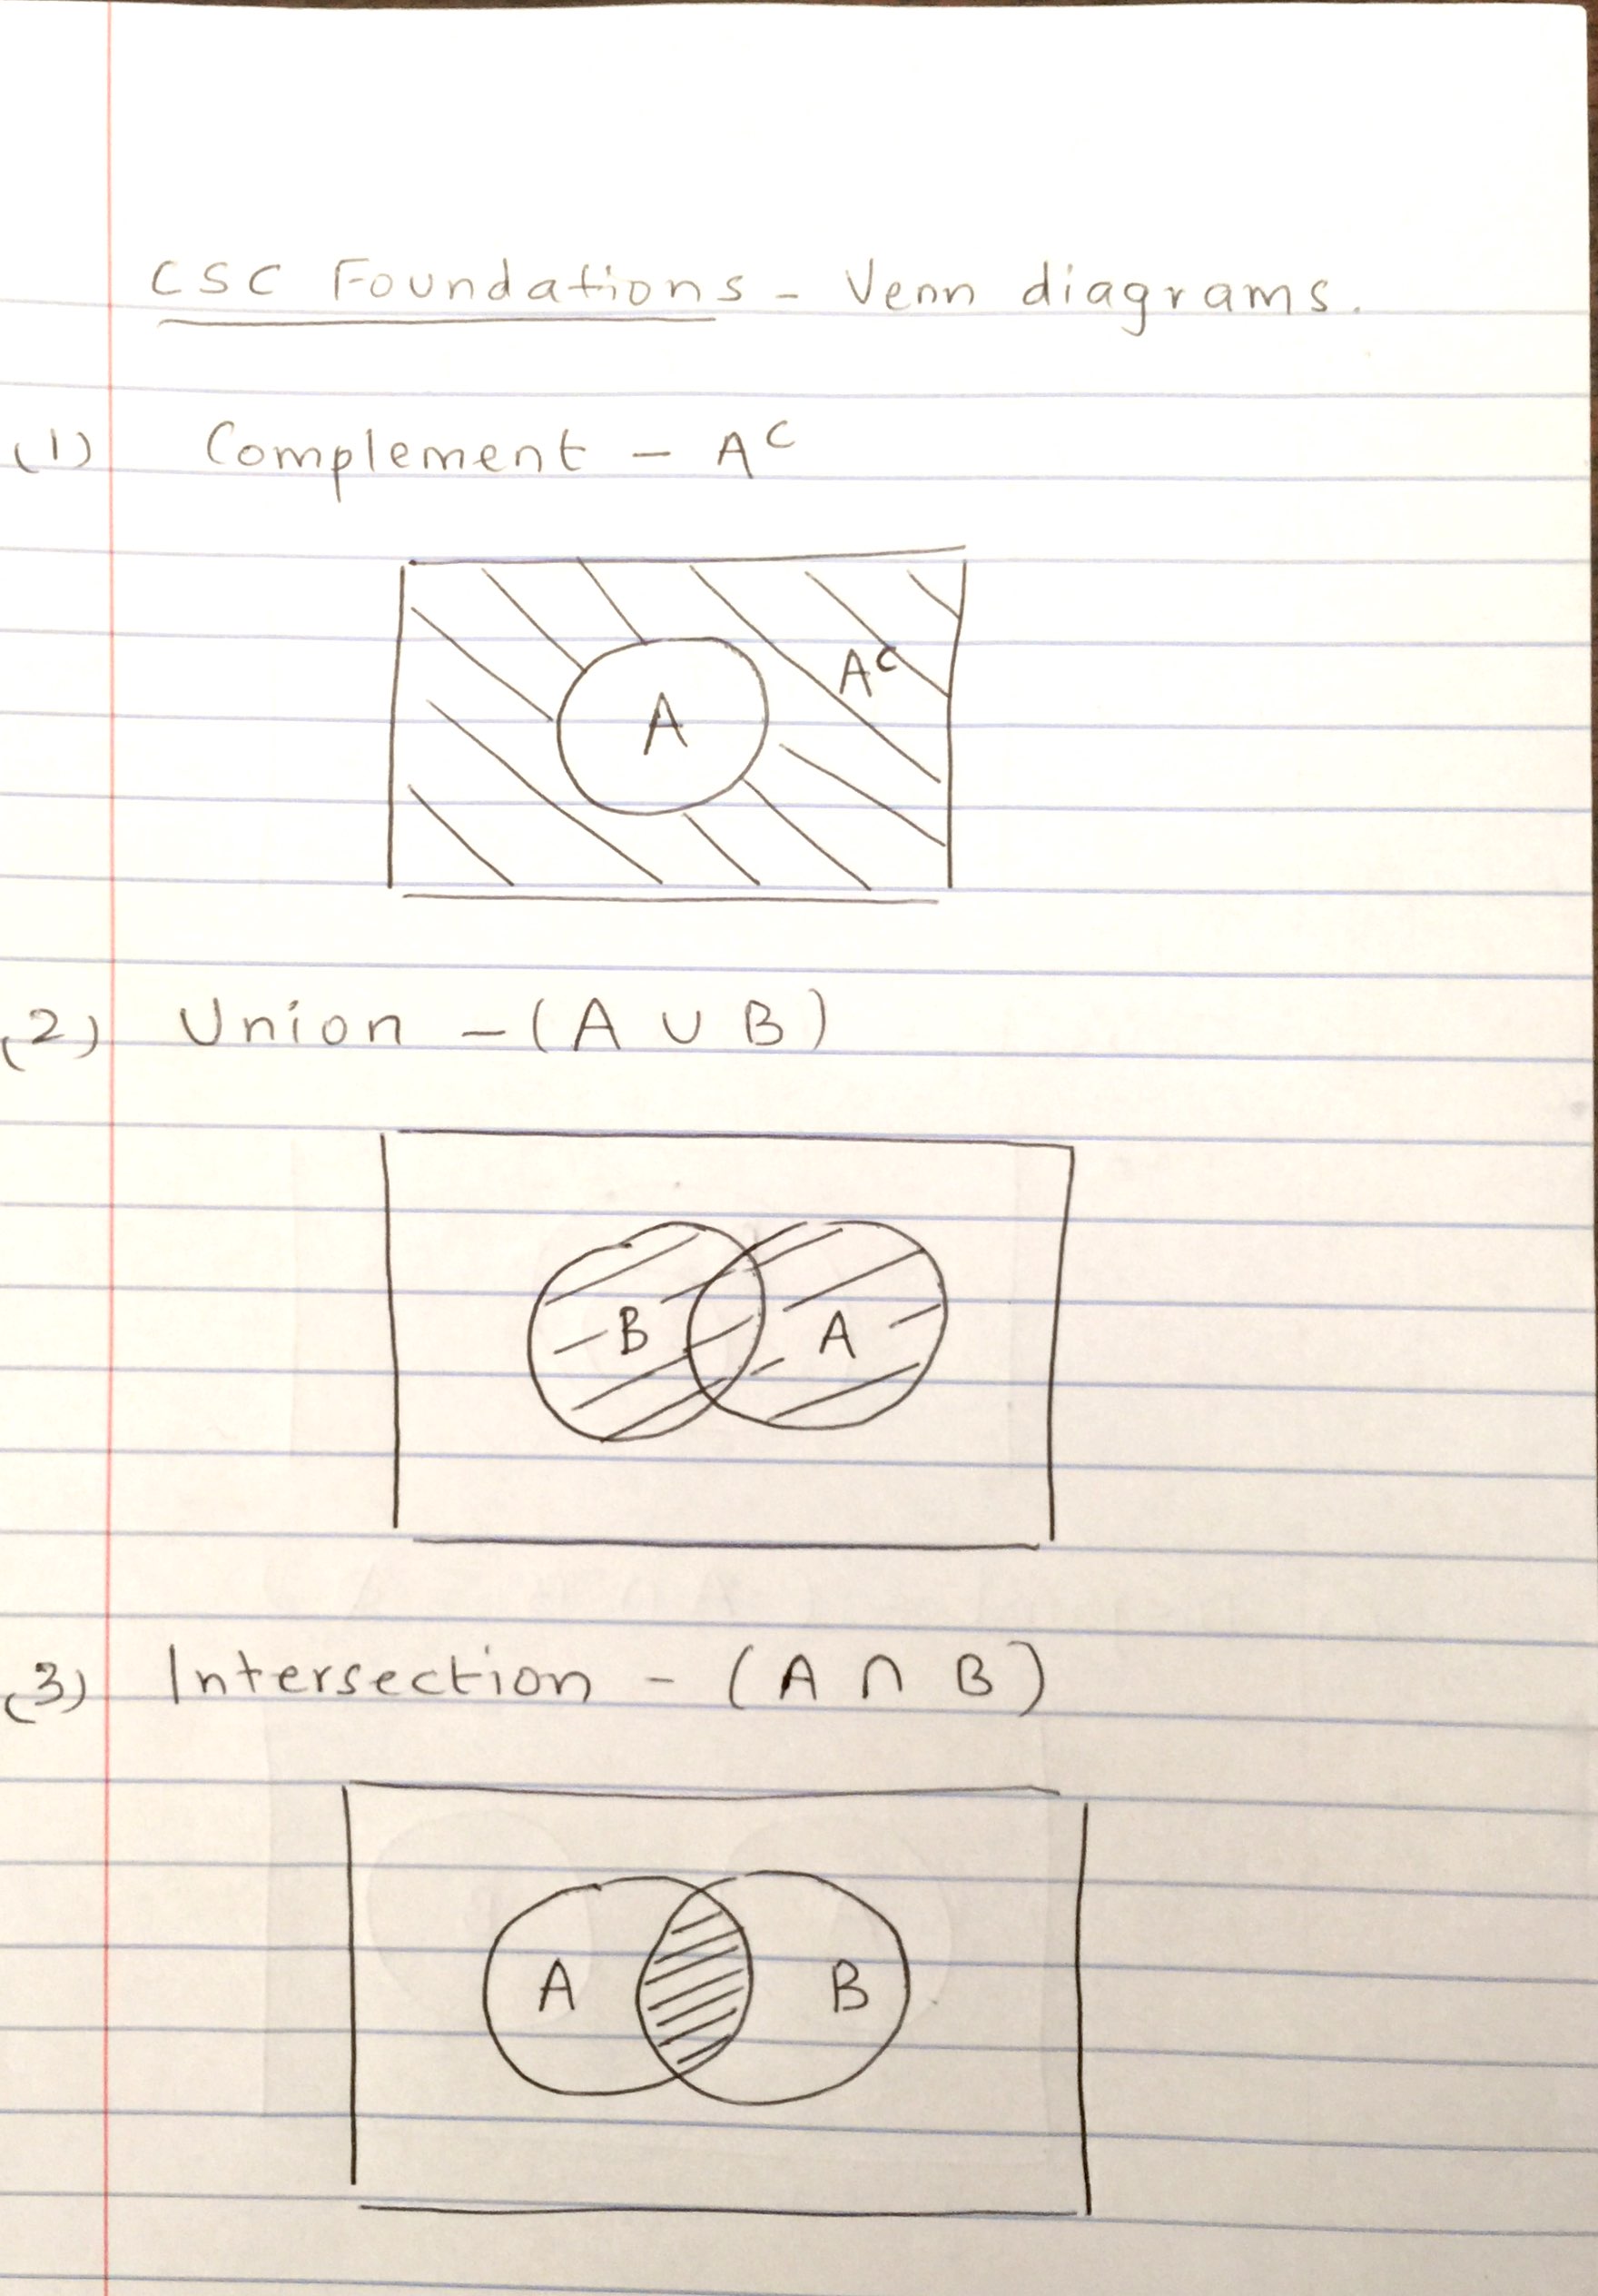 CSC Foundations - Venn diagrams.
(1) Complement - Aᶜ
Aᶜ
A
(2) Union - (A ∪ B)
B A
(3) Intersection - (A ∩ B)
A B